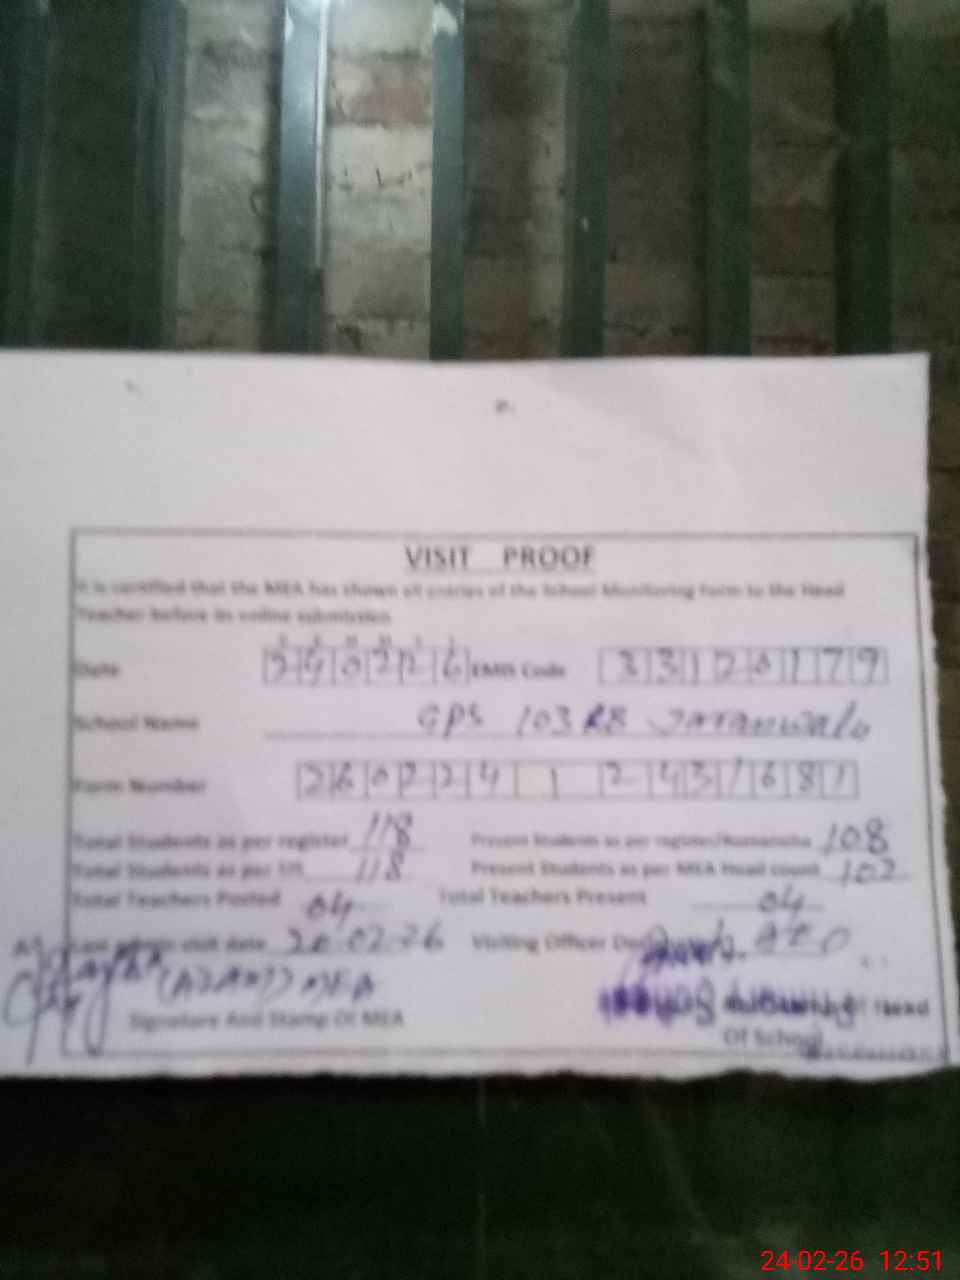 VISIT PROOF
It is certified that the MEA has shown all entries of the School Monitoring Form to the Head
Teacher before its online submission
Date 240226 EMIS Code 33120179
School Name GPS 103 RB Jaranwala
Form Number 260224 1 2431681
Total Students as per register 118 Present Students as per register/
Total Students as per 118 Present Students as per MEA Head count 102
108
Total Teachers Posted 04 Total Teachers Present 04
visit date 20-02-26 Visiting Officer AEO
MEA
Signature And Stamp Of MEA
Head
Of School
24-02-26 12:51